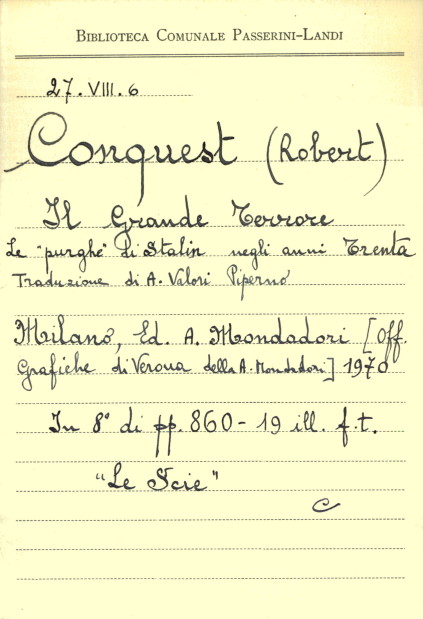 BIBLIOTECA COMUNALE PASSERINI-LANDI
27. VIII. 6
Conquest (Robert)
Il Grande Terrore
Le "purghe" di Stalin negli anni Trenta
Traduzione di A. Valori Piperno
Milano, Ed. A. Mondadori [Off.
Grafiche di Verona della A. Mondadori] 1970
In 8° di pp. 860 - 19 ill. f.t.
"Le Scie"
C